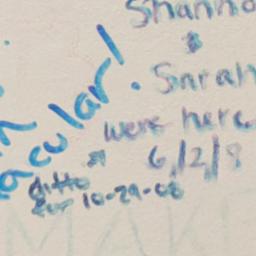 Shanno
&
Sarah
were here
6/2/8
acular!
ditto
for 10-29-08
MAK